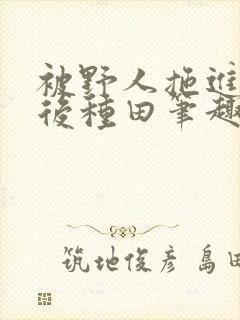 被野人拖進
後種田筆趣
筑地俊彦 島田